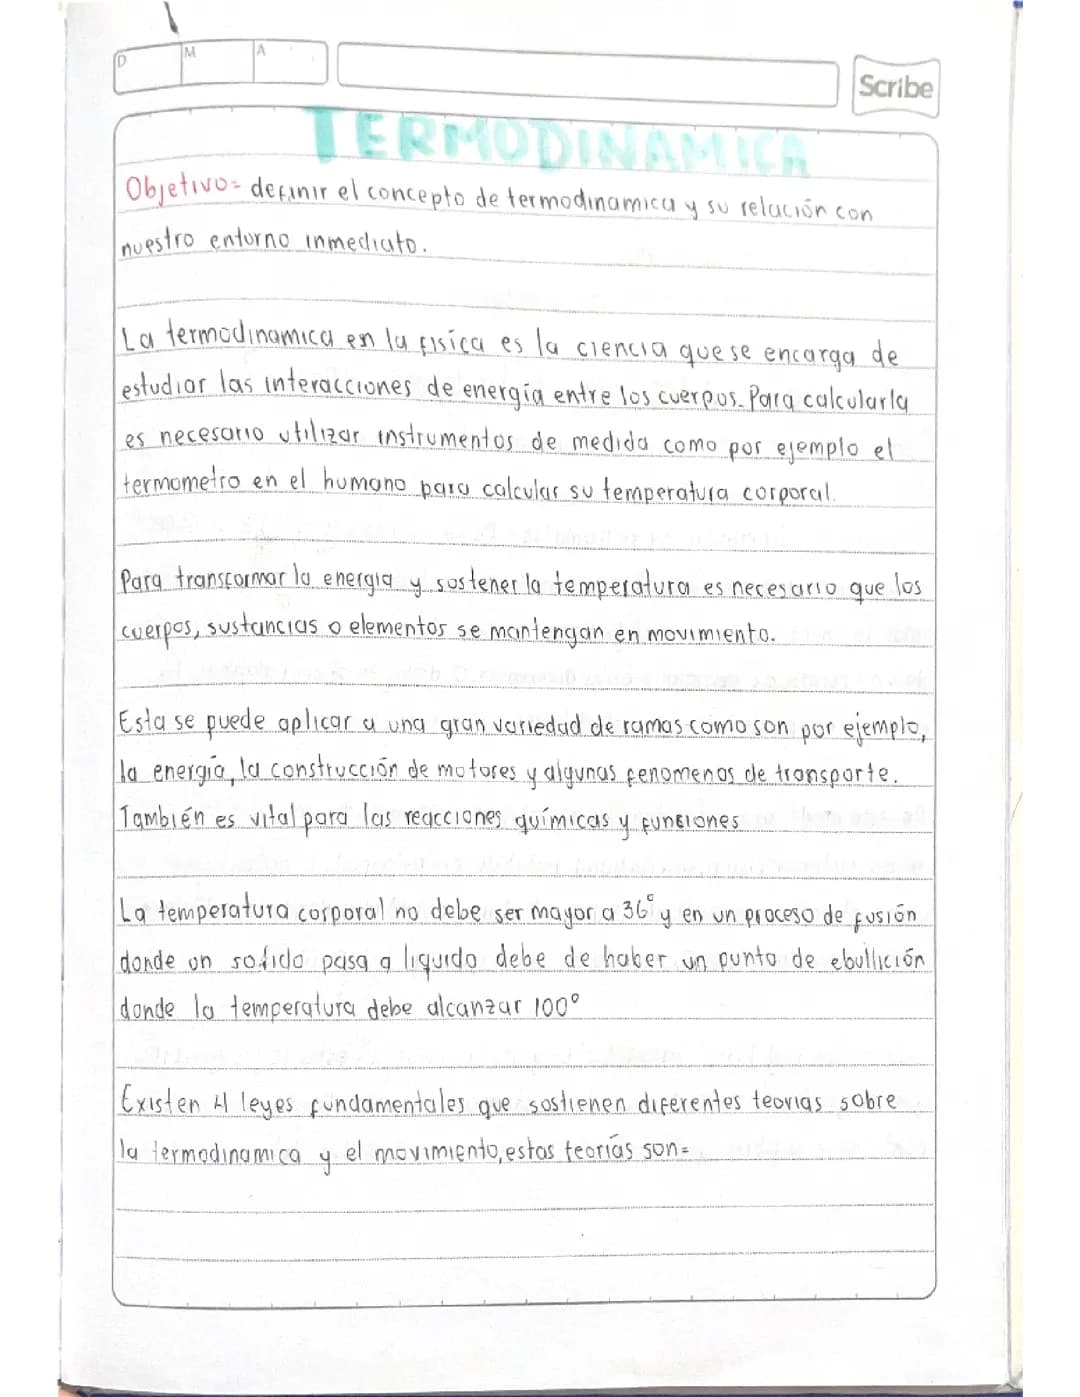 D M A
Scribe
TERMODINAMICA
Objetivo= definir el concepto de termodinamica y su relación con
nuestro entorno inmediato.
La termodinamica en la física es la ciencia que se encarga de
estudiar las interacciones de energía entre los cuerpos. Para calcularla
es necesario utilizar instrumentos de medida como por ejemplo el
termometro en el humano para calcular su temperatura corporal.
Para transformar la energia y sostener la temperatura es necesario que los
cuerpos, sustancias o elementos se mantengan en movimiento.
Esta se puede aplicar a una gran variedad de ramas como son por ejemplo,
la energía, la construcción de motores y algunas fenomenos de transporte.
También es vital para las reacciones químicas y funsiones
La temperatura corporal no debe ser mayor a 36° y en un proceso de fusión
donde un solido pasa a liquido debe de haber un punto de ebullición
donde la temperatura debe alcanzar 100°
Existen 4 leyes fundamentales que sostienen diferentes teorias sobre
la termodinamica y el movimiento, estas teorías son=